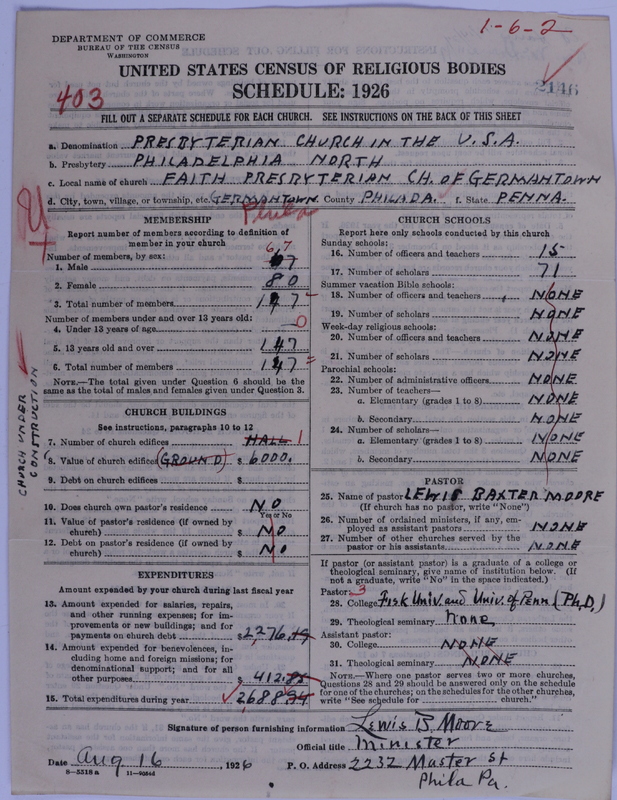 1-6-2
DEPARTMENT OF COMMERCE
BUREAU OF THE CENSUS
WASHINGTON
UNITED STATES CENSUS OF RELIGIOUS BODIES
SCHEDULE: 1926
403
2146
FILL OUT A SEPARATE SCHEDULE FOR EACH CHURCH. SEE INSTRUCTIONS ON THE BACK OF THIS SHEET
a. Denomination PRESBYTERIAN CHURCH IN THE U.S.A.
b. Presbytery PHILADELPHIA NORTH
c. Local name of church FAITH PRESBYTERIAN CH. OF GERMANTOWN
d. City, town, village, or township, etc. GERMANTOWN. County PHILADA. f. State PENNA.
Phila
MEMBERSHIP
Report number of members according to definition of
member in your church
Number of members, by sex:
1. Male 67
2. Female 80
3. Total number of members 147
Number of members under and over 13 years old:
4. Under 13 years of age 0
5. 13 years old and over 147
6. Total number of members 147
NOTE.—The total given under Question 6 should be the
same as the total of males and females given under Question 3.
CHURCH UNDER
CONSTRUCTION
CHURCH BUILDINGS
See instructions, paragraphs 10 to 12
7. Number of church edifices HALL 1
8. Value of church edifices (GROUND) $ 6000.
9. Debt on church edifices $
10. Does church own pastor's residence NO
Yes or No
11. Value of pastor's residence (if owned by
church) $ NO
12. Debt on pastor's residence (if owned by
church) $ NO
EXPENDITURES
Amount expended by your church during last fiscal year
13. Amount expended for salaries, repairs,
and other running expenses; for im-
provements or new buildings; and for
payments on church debt $2276.
14. Amount expended for benevolences, in-
cluding home and foreign missions; for
denominational support; and for all
other purposes $412.
15. Total expenditures during year 2688
CHURCH SCHOOLS
Report here only schools conducted by this church
Sunday schools:
16. Number of officers and teachers 15
17. Number of scholars 71
Summer vacation Bible schools:
18. Number of officers and teachers NONE
19. Number of scholars NONE
Week-day religious schools:
20. Number of officers and teachers NONE
21. Number of scholars NONE
Parochial schools:
22. Number of administrative officers NONE
23. Number of teachers—
a. Elementary (grades 1 to 8) NONE
b. Secondary NONE
24. Number of scholars—
a. Elementary (grades 1 to 8) NONE
b. Secondary NONE
PASTOR
25. Name of pastor LEWIS BAXTER MOORE
(If church has no pastor, write "None")
26. Number of ordained ministers, if any, em-
ployed as assistant pastors NONE
27. Number of other churches served by the
pastor or his assistants NONE
If pastor (or assistant pastor) is a graduate of a college or
theological seminary, give name of institution below. (If
not a graduate, write "No" in the space indicated.)
Pastor: 3
28. College Fisk Univ. and Univ. of Penn (Ph.D.)
29. Theological seminary none
Assistant pastor:
30. College NONE
31. Theological seminary NONE
NOTE.—Where one pastor serves two or more churches,
Questions 28 and 29 should be answered only on the schedule
for one of the churches; on the schedules for the other churches,
write "See schedule for church."
Signature of person furnishing information Lewis B. Moore
Official title Minister
Date Aug 16, 1926 P. O. Address 2232 Master St
8—5318 a Phila Pa.